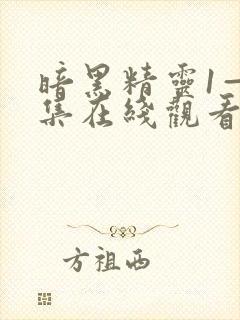 暗黑精靈1—
集在綫觀看
方祖西